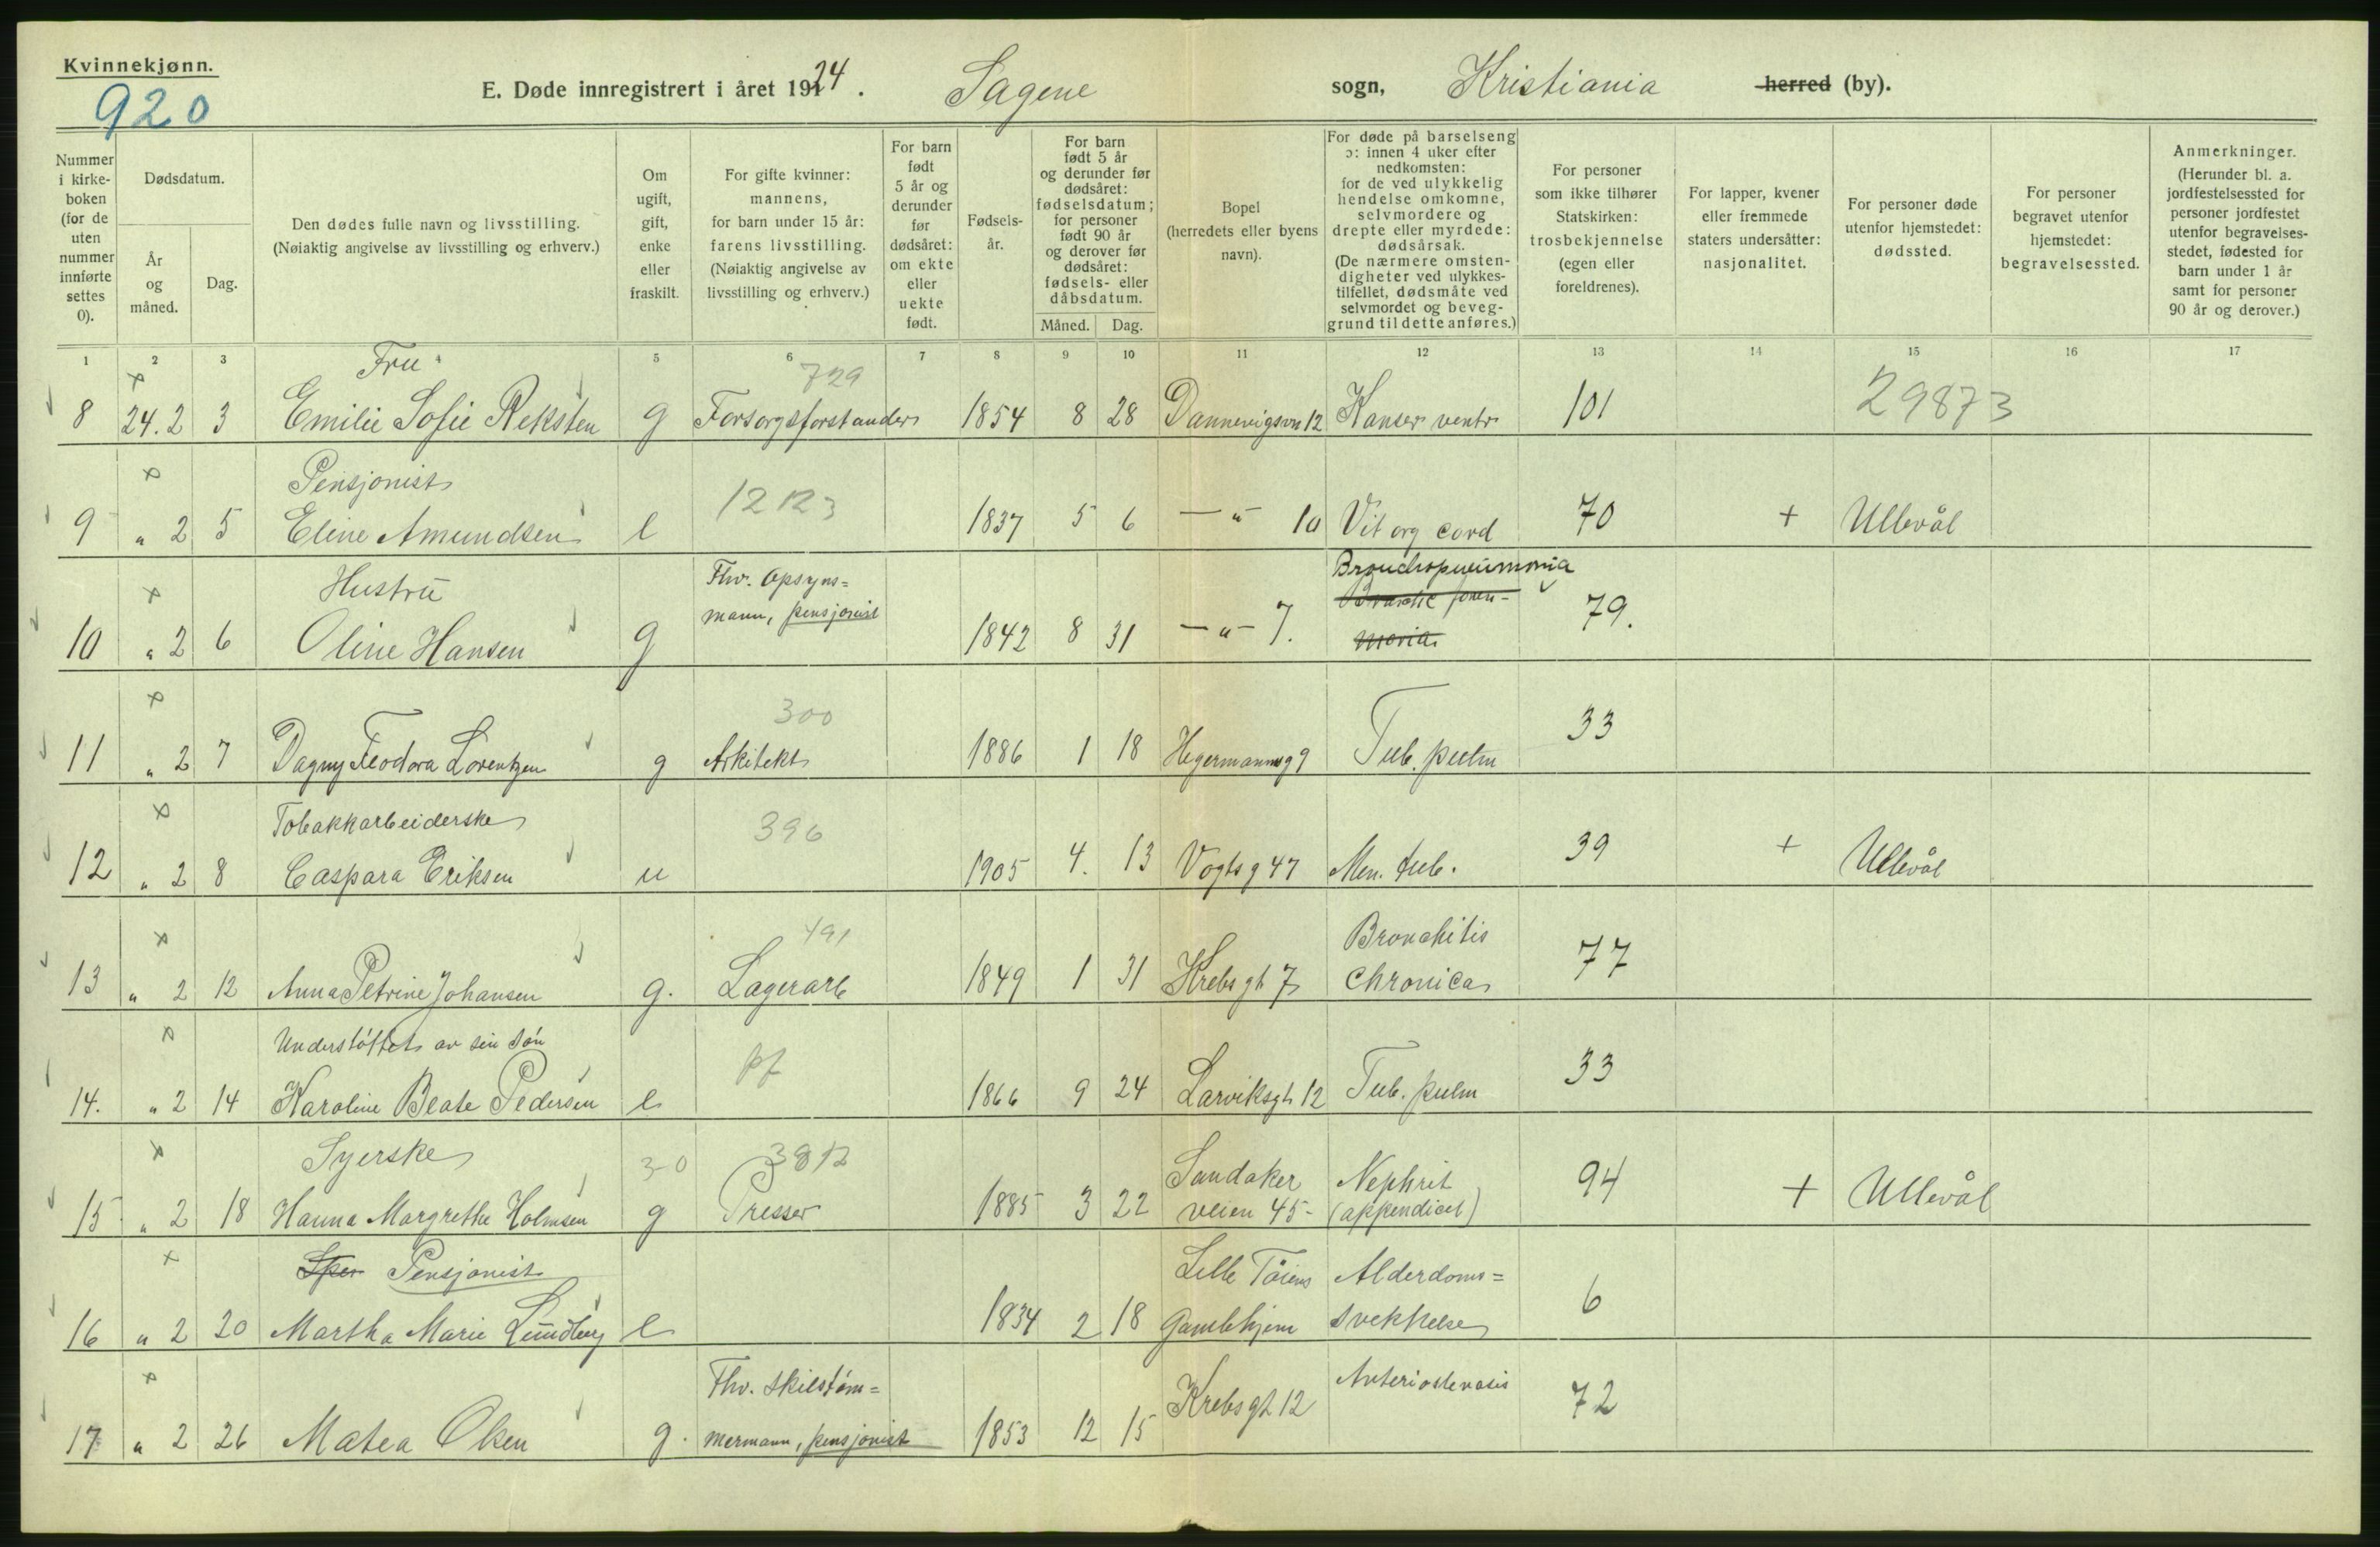 Kvinnekjønn.
920
E. Døde innregistrert i året 1924. Sagene sogn, Kristiania herred (by).
Nummer i kirke-boken (for de uten nummer innførte settes 0).
Dødsdatum.
År og måned.
Dag.
Den dødes fulle navn og livsstilling.
(Nøiaktig angivelse av livsstilling og erhverv.)
Om ugift, gift, enke eller fraskilt.
For gifte kvinner: mannens, for barn under 15 år: farens livsstilling. (Nøiaktig angivelse av livsstilling og erhverv.)
For barn født 5 år og derunder før dødsåret: om ekte eller uekte født.
Fødsels-år.
For barn født 5 år og derunder før dødsåret: fødselsdatum; for personer født 90 år og derover før dødsåret: fødsels- eller dåbsdatum.
Måned. Dag.
Bopel (herredets eller byens navn).
For døde på barselseng ɔ: innen 4 uker efter nedkomsten: for de ved ulykkelig hendelse omkomne, selvmordere og drepte eller myrdede: dødsårsak. (De nærmere omsten-digheter ved ulykkes-tilfellet, dødsmåte ved selvmordet og beveg-grund til dette anføres.)
For personer som ikke tilhører Statskirken: trosbekjennelse (egen eller foreldrenes).
For lapper, kvener eller fremmede staters undersåtter: nasjonalitet.
For personer døde utenfor hjemstedet: dødssted.
For personer begravet utenfor hjemstedet: begravelsessted.
Anmerkninger. (Herunder bl. a. jordfestelsessted for personer jordfestet utenfor begravelses-stedet, fødested for barn under 1 år samt for personer 90 år og derover.)
1 2 3 5 6 7 8 9 10 11 12 13 14 15 16 17
Fru 729
8 24.2 3 Emilie Sofie Reksten g Forsorgsforstander 1854 8 28 Dannevigsvn 12 Kanser ventr 101 29873
Pensjonist 12123
9 " 2 5 Eline Amundsen e 1837 5 6 — " 10 Vit org cord 70 + Ullevål
Hustru Fhv. Opsyns= Bronchopneumonia
mann, pensjonist
10 " 2 6 Oline Hansen g 1842 8 31 — " — 7. monia 79.
300
11 " 2 7 Dagny Feodora Lorentzen g Arkitekt 1886 1 18 Hegermannsg 9 Tub. pulm 33
Tobakkarbeiderske 396
12 " 2 8 Caspara Eriksen u 1905 4. 13 Vogtsg 47 Men. tub. 39 + Ullevål
491 Bronchitis
13 " 2 12 Anna Petrine Johansen g. Lagerarb 1849 1 31 Krebsgt 7 Chronica 77
Understøttet av sin søn pf
14. " 2 14 Karoline Beate Pedersen e 1866 9 24 Larviksgt 12 Tub. pulm 33
Syerske 30 3812 Sandaker Nephrit
15 " 2 18 Hanna Margrethe Holmsen g Presser 1885 3 22 veien 45- (appendicit) 94 + Ullevål
Pensjonist Lille Tøiens Alderdoms=
16 " 2 20 Martha Marie Lundberg e 1834 2 18 Gamlehjem svekkelse 6
Fhv. skilstøm= Krebsgt 12 Arteriostenosis 72
17 " 2 26 Matea Olsen g. mermann, pensjonist 1853 12 15